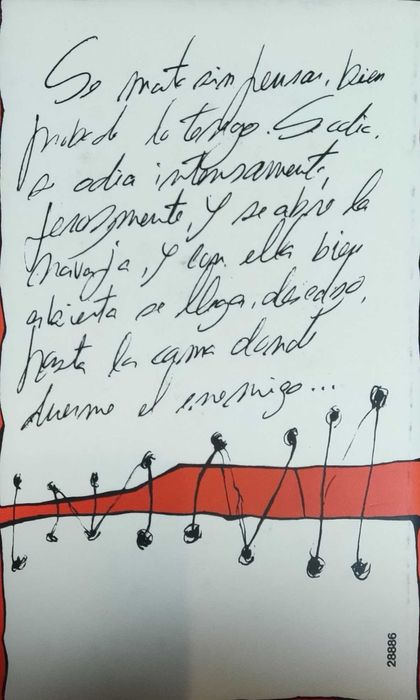 Se mata sin pensar, bien
probado lo tengo. Se odia,
se odia intensamente,
ferozmente, y se abre la
navaja, y con ella bien
abierta se llega, descalzo,
hasta la cama donde
duerme el enemigo...
28886